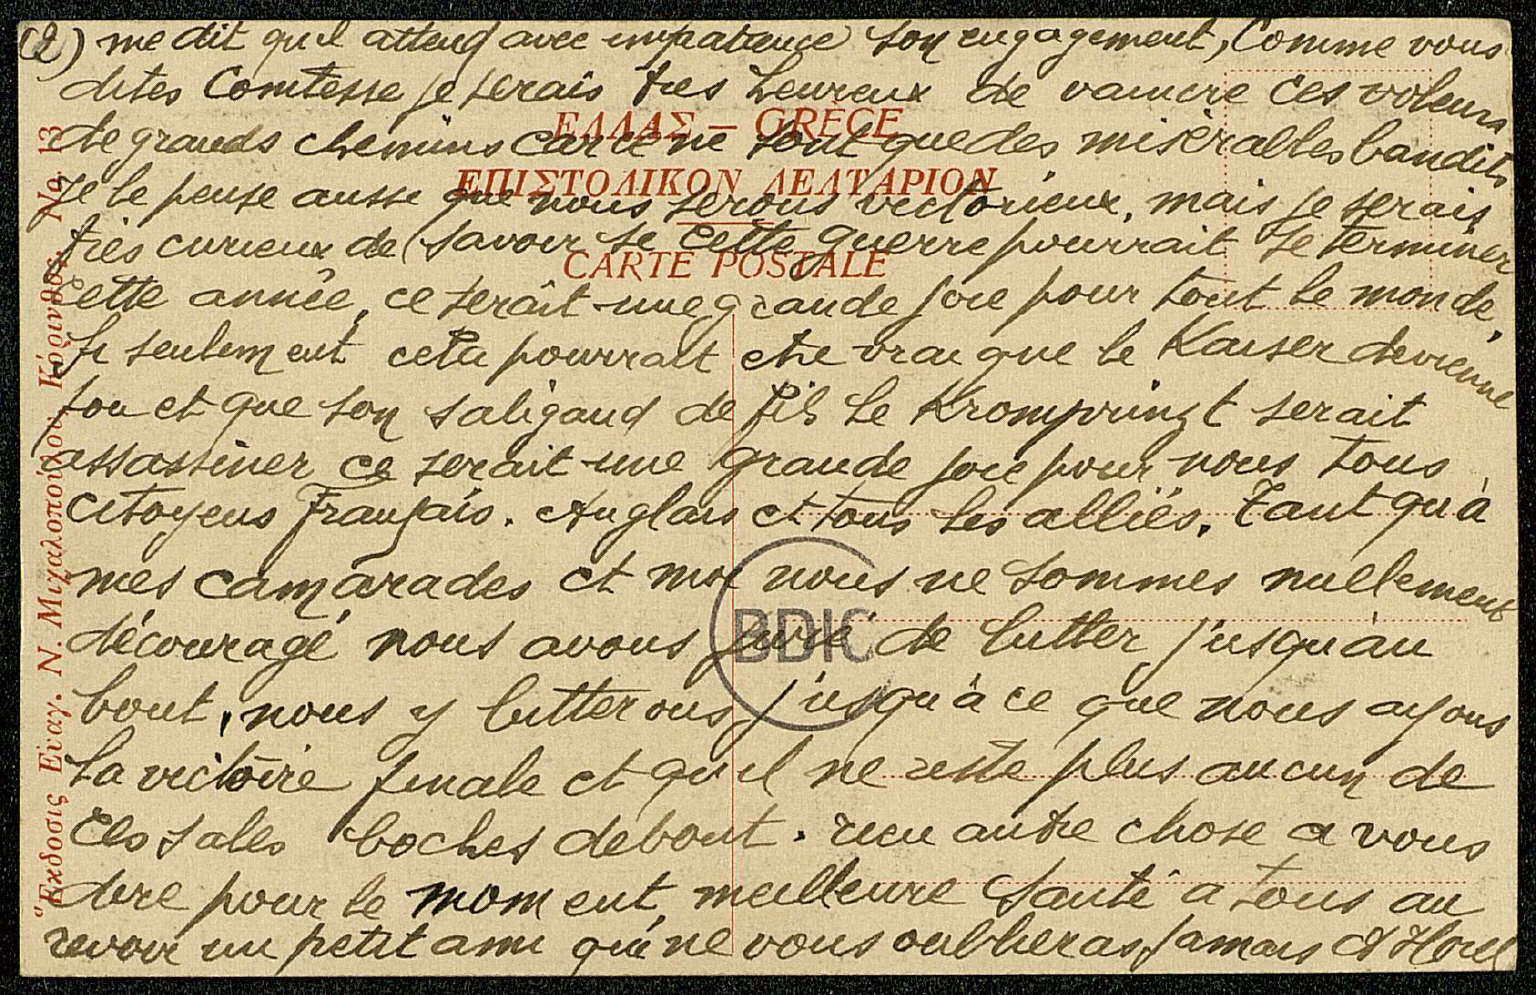 (2) me dit qu'il attend avec impatience son engagement, Comme vous
dites Comtesse je serais tres heureux de vaincre ces voleurs
de grands chemins car ce ne sont que des misèrables bandits
Je le pense aussi que nous serons victorieux, mais je serais
très curieux de savoir si cette guerre pourrait se terminer
cette année, ce serait une grande joie pour tout le monde,
Si seulement cela pourrait etre vrai que le Kaiser devienne
fou et que son saligaud de fils le Kromprinzt serait
assassiner ce serait une grande joie pour nous tous
citoyens Français. Anglais et tous les alliés. Tant qu'à
mes camarades et moi nous ne sommes nullement
découragé nous avons juré de lutter jusqu'au
bout, nous y lutterons jusqu'à ce que nous ayons
la victoire finale et qu'il ne reste plus aucun de
ces sales boches debout. rien autre chose a vous
dire pour le moment, meilleure santé a tous au
revoir un petit ami qui ne vous oublieras jamais
ΕΛΛΑΣ – GRÈCE
ΕΠΙΣΤΟΛΙΚΟΝ ΔΕΛΤΑΡΙΟΝ
CARTE POSTALE
Ἔκδοσις Εὐαγ. Ν. Μιχαλοπούλου, Κόρινθος Νο 13
BDIC